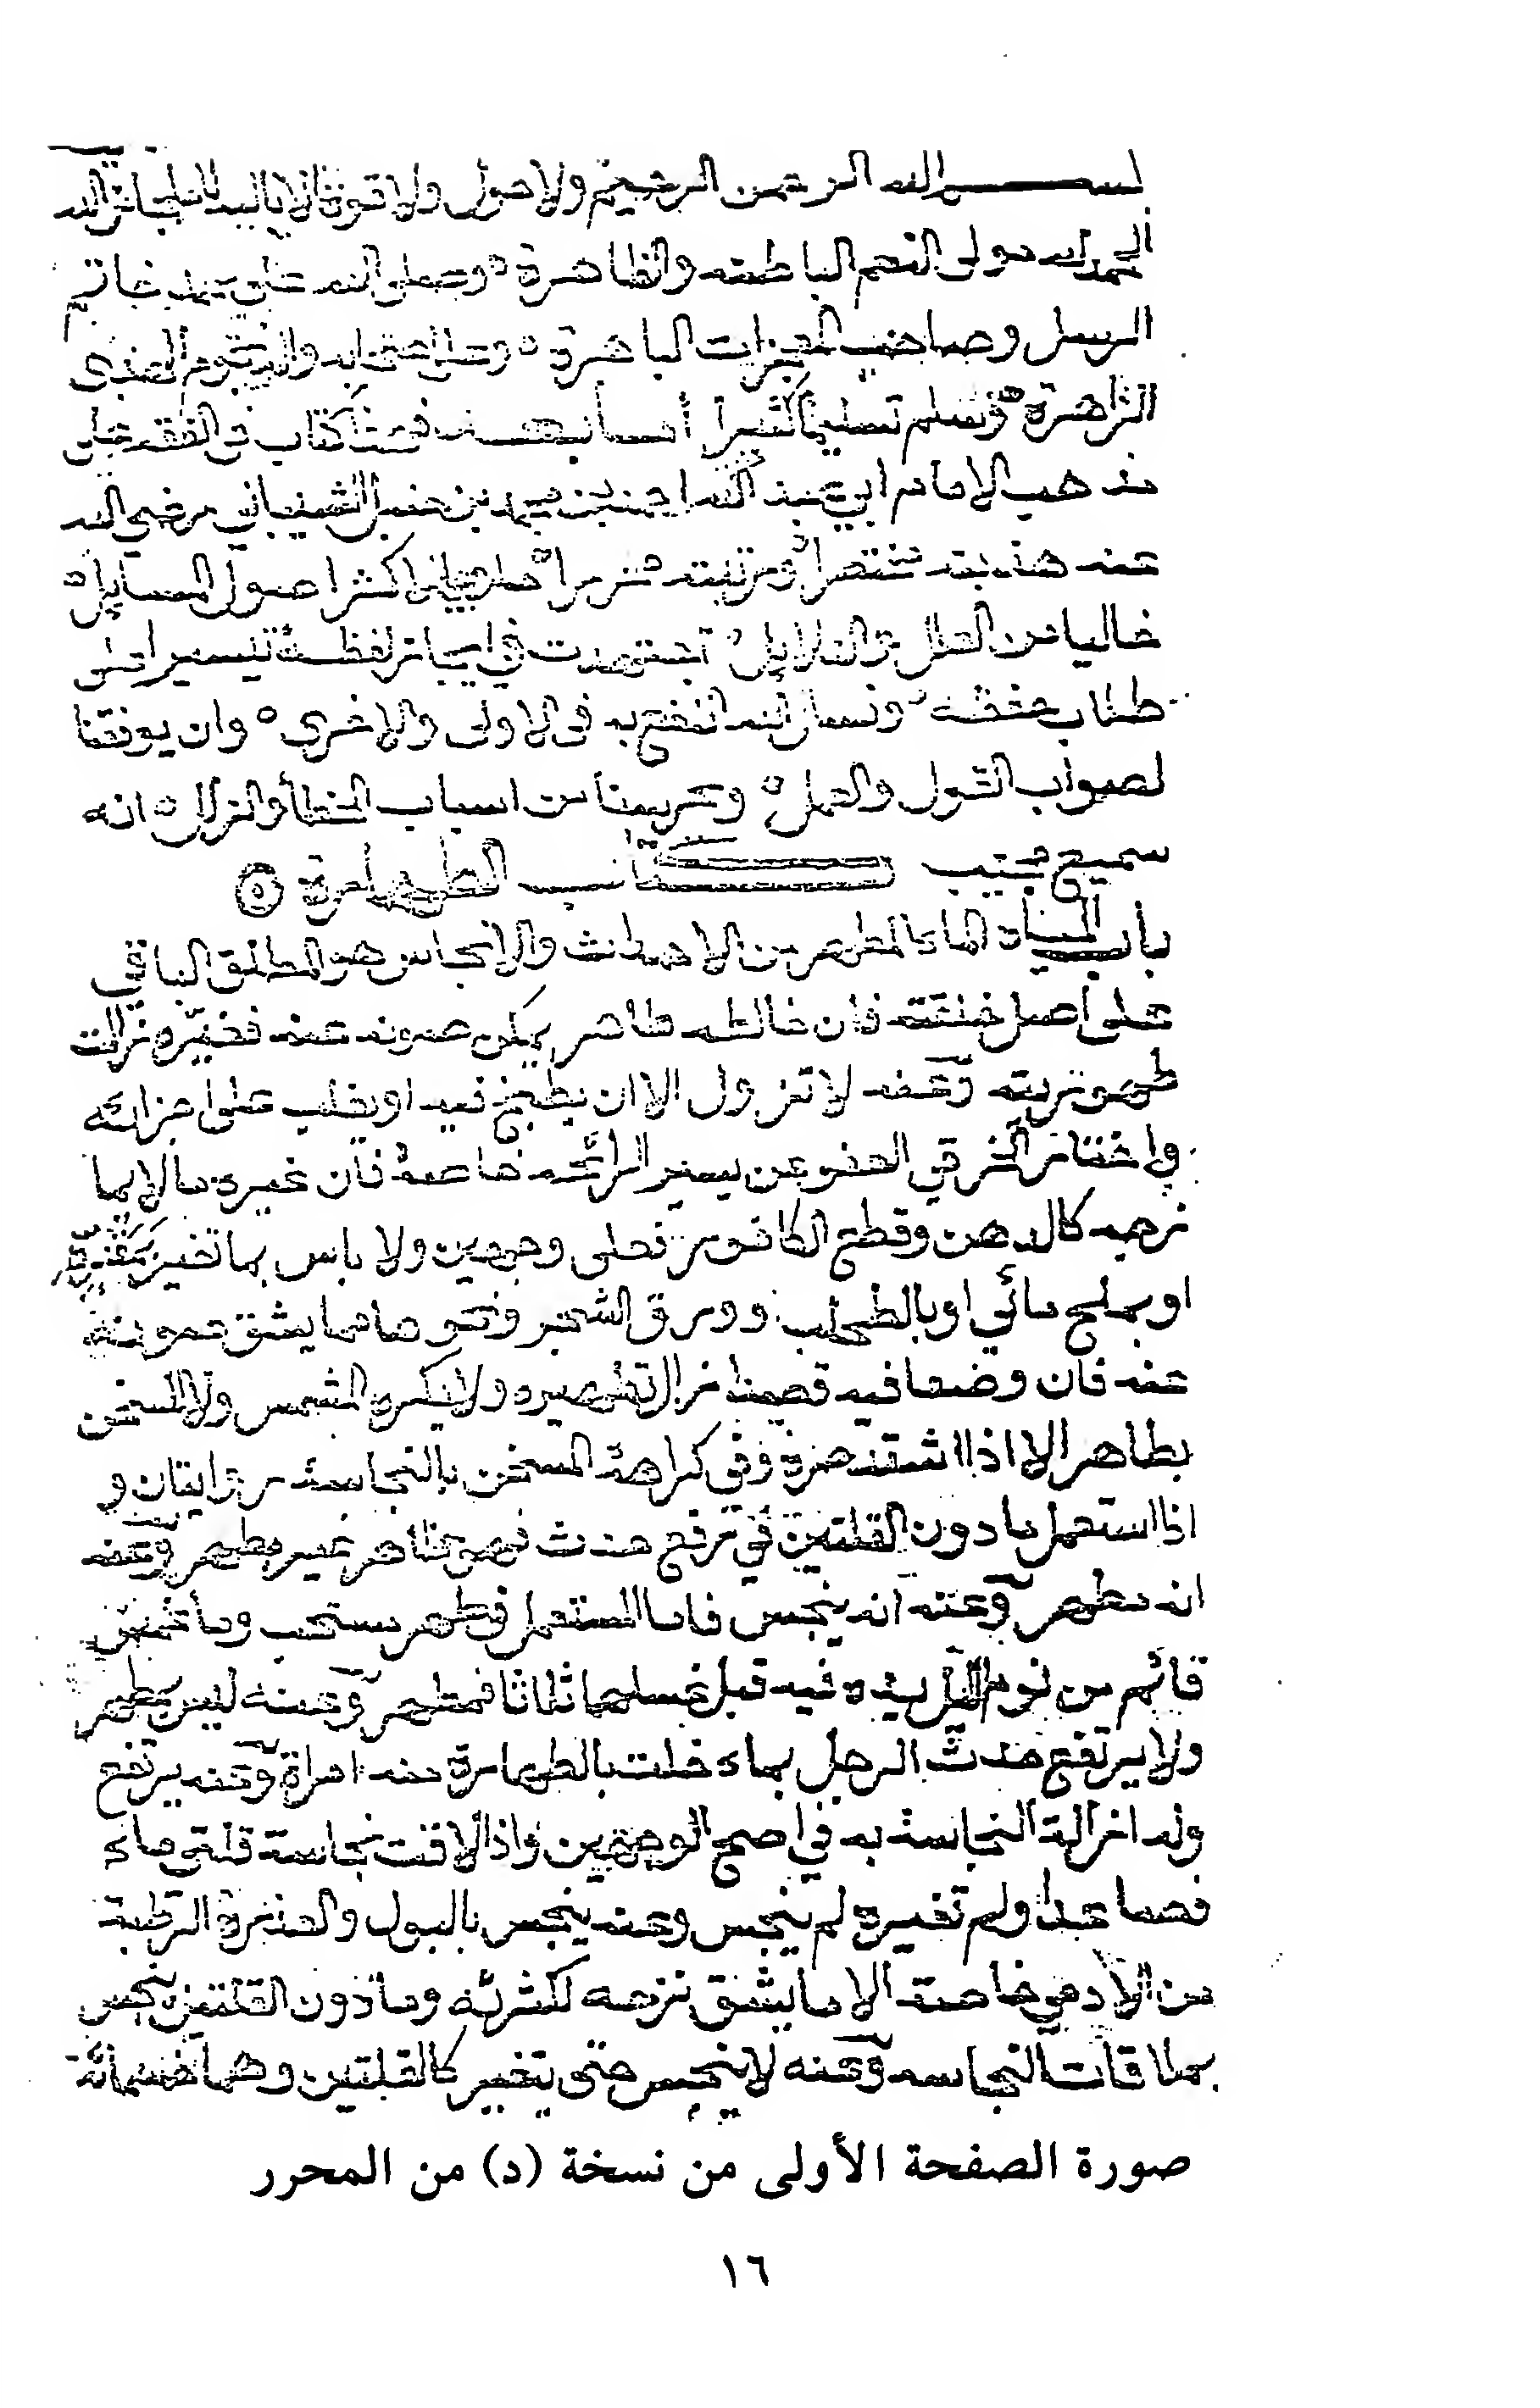 بسم الله الرحمن الرحيم ولا حول ولا قوة الا بالله
الحمد لله مولى النعم الباطنه والظاهرة ٥ وصلى الله على محمد خاتم
الرسل وصاحب المعجزات الباهرة ٥ وعلى اصحابه
الزاهرة وسلم تسليما كثيرا أما بعد فهذا كتاب في الفقه على
مذهب الامام ابي عبد الله احمد بن محمد بن حنبل الشيباني رضي الله
عنه هذبته مختصرا ورتبته محررا حاويا لاكثر اصول المسايل ٥
خاليا من العلل والدلايل اجتهدت في ايجاز لفظه تيسيرا على
طلاب حفظه ونسأل الله النفع به في الاولى والاخرى ٥ وان يوفقنا
لصواب القول والعمل ٥ ويحرسنا من اسباب الخطأ والزلل ٥ انه
سميع مجيب كتاب الطهارة ٥
باب المياه الماء المطهر من الاحداث والانجاس هو المطلق الباقي
على أصل خلقته فان خالطه طاهر يمكن صونه عنه فغيّره زالت
طهوريته وعنه لا تزول الا ان يطبخ فيه او يغلب على اجزائه
واختار الخرقي العفو عن يسير الرائحه خاصة فان غيره ما لا يما
زجه كالدهن وقطع الكافور فعلى وجهين ولا باس بما تغير بمقره
او بملح مائي او بالطحلب وورق الشجر ونحوهما مما يشق صونه
عنه فان وضعا فيه قصدا زال تطهيره ولا يكره المشمس ولا المسخن
بطاهر الا اذا اشتد حره وفي كراهة المسخن بالنجاسة روايتان و
اذا استعمل ما دون القلتين في رفع حدث فهو طاهر غير مطهر وعنه
انه مطهر وعنه انه ينجس فاما المستعمل في طهر مستحب وما غمس
قائم من نوم الليل يده فيه قبل غسلها ثلاثا فمطهر وعنه ليس بمطهر
ولا يرتفع حدث الرجل بماء خلت بالطهارة منه امراة وعنه يرتفع
وله ازالة النجاسة به في اصح الوجهين واذا لاقت نجاسة قلتي ماء
فصاعدا ولم تغيره لم ينجس وعنه ينجس بالبول والعذرة الرطبة
من الادمي خاصة الا ما يشق نزحه لكثرته وما دون القلتين ينجس
بملاقات النجاسه وعنه لا ينجس حتى يتغير كالقلتين وهما خمسمائة
صورة الصفحة الأولى من نسخة (د) من المحرر
١٦